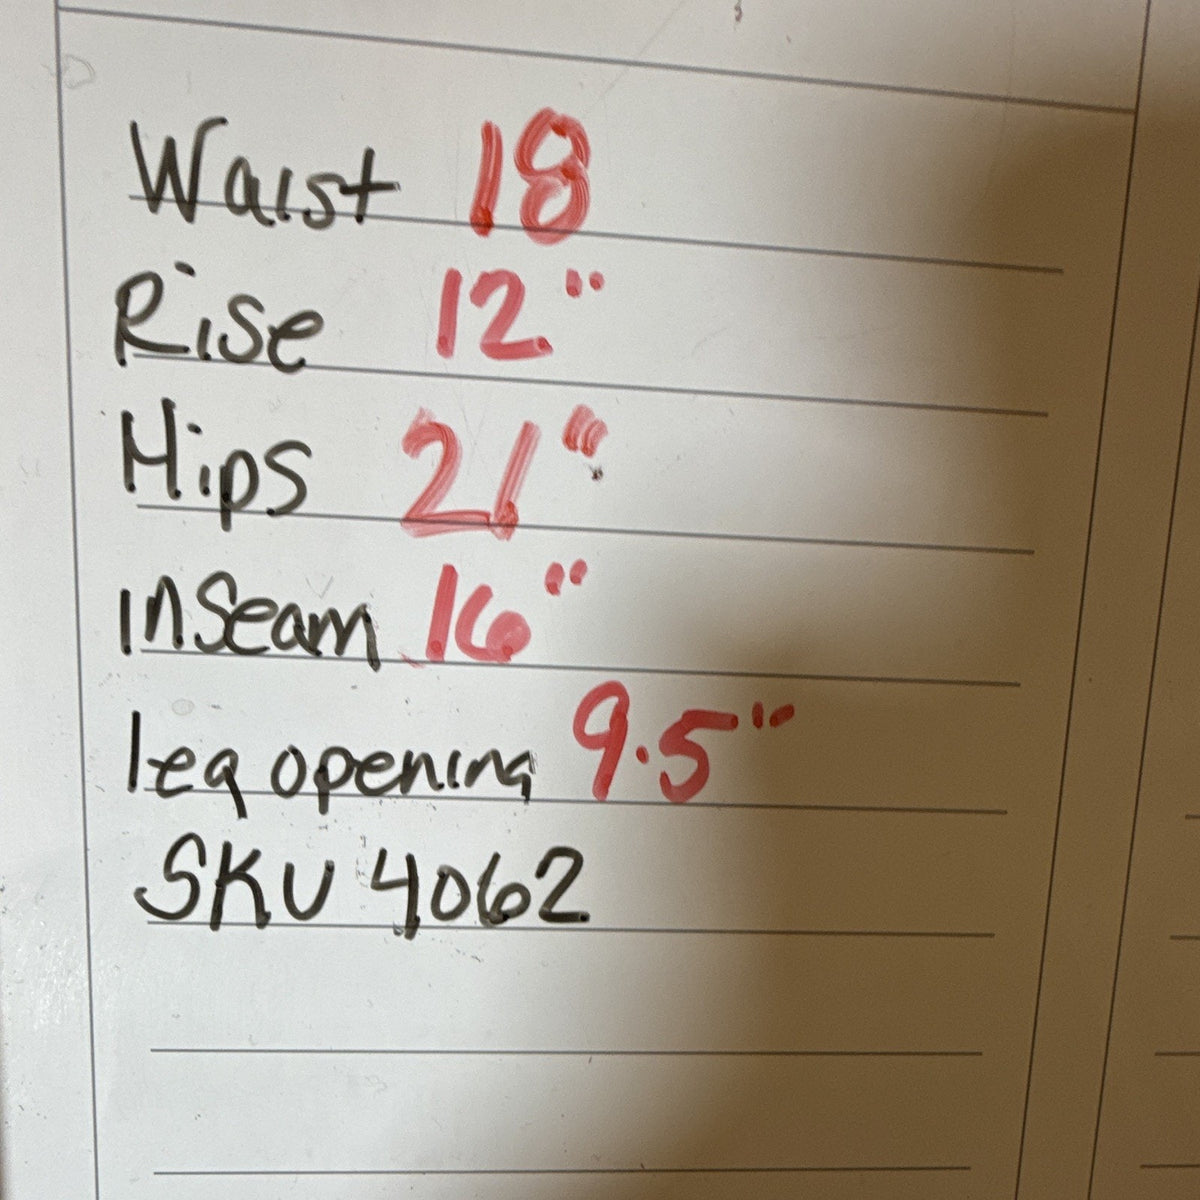 Waist 18
Rise 12"
Hips 21"
inseam 16"
leg opening 9.5"
SKU 4062